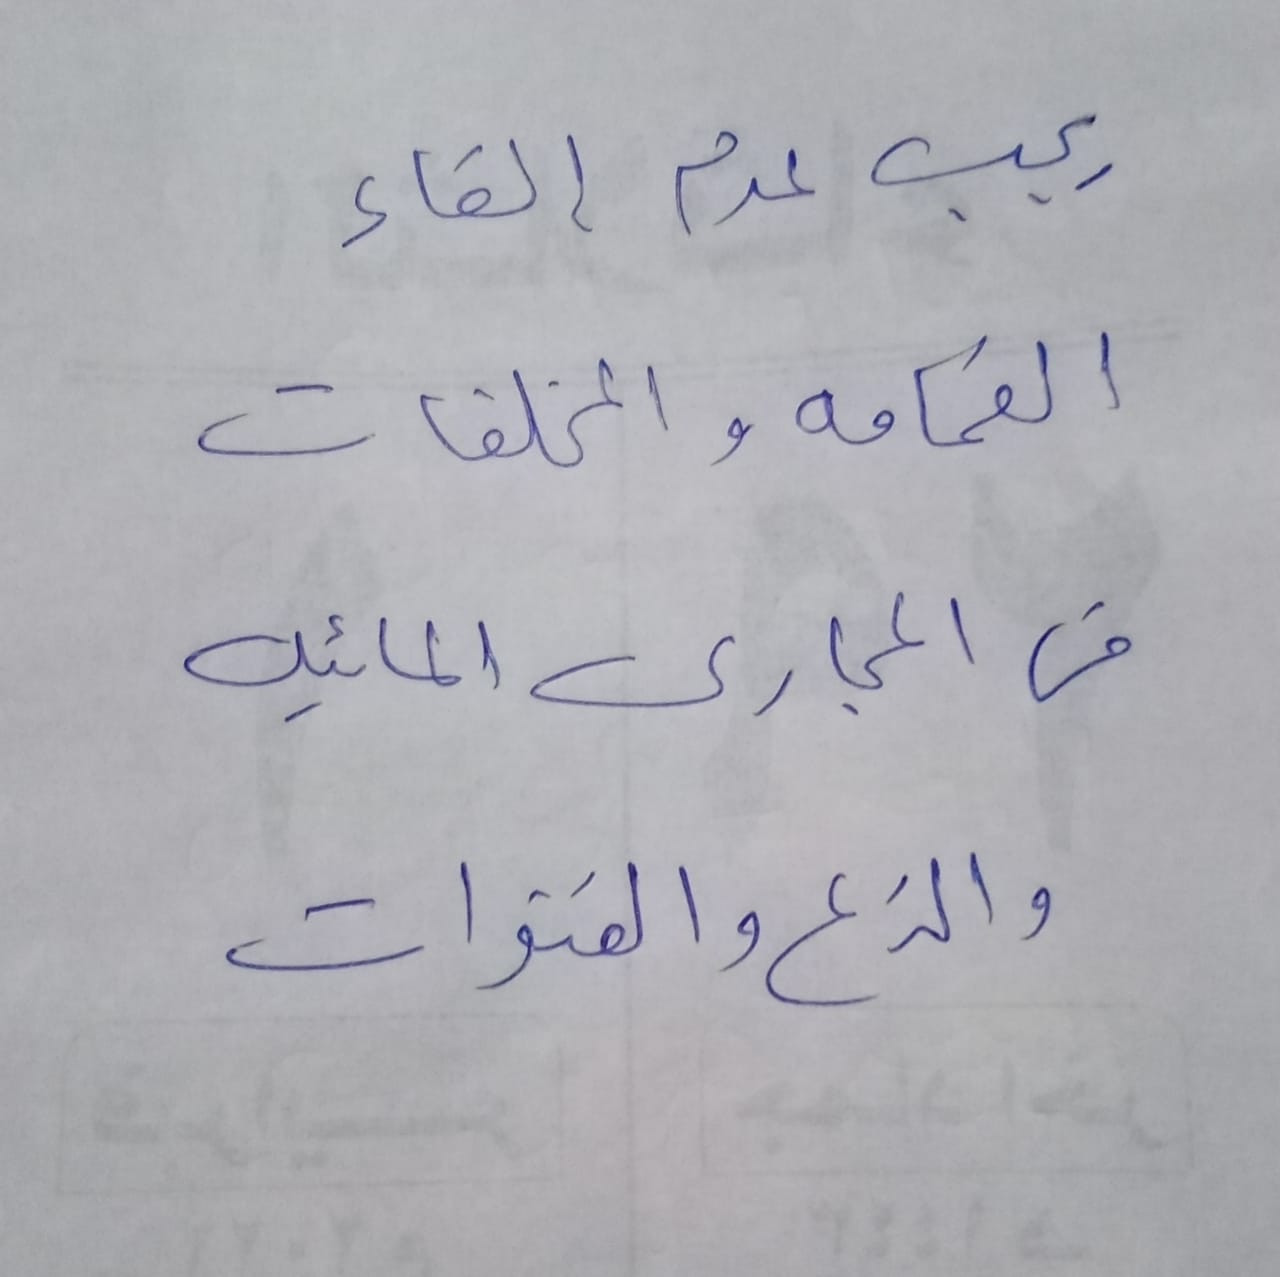 يجب عدم إلقاء
القمامه والمخلفات
فى المجارى المائيه
والترع والقنوات